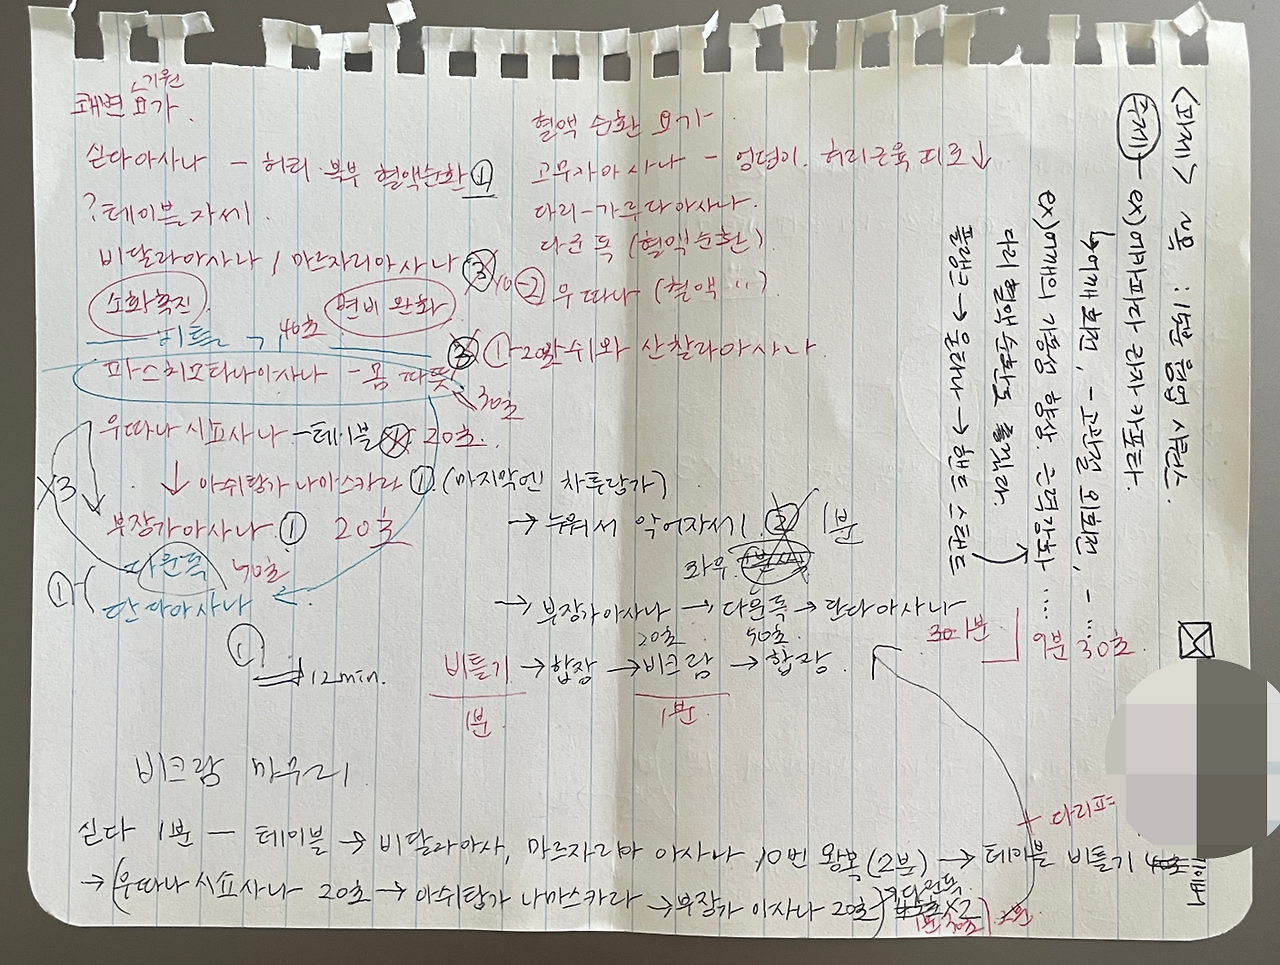 쾌변 요가
기원
싣다아사나 - 허리 복부 혈액순환 ①
? 테이블 자세
비달라아사나 / 마르자리아사나 ③
소화촉진
변비 완화
비틀기 40초
- 몸 따뜻
30초
우따나 시쇼사나 - 테이블 20초
↓ 아쉬탕가 나마스카라 ① (마지막엔 차투랑가)
X3
부장가아사나 ① 20초
다운독 50초
①-(
단다아사나
①
12min.
혈액 순환 요가
고무카아사나 - 엉덩이, 허리근육 피로↓
다리-가루다아사나
다운독 (혈액순환)
② 우따나 (혈액 '')
산찰라아사나
→ 누워서 악어자세 1분
좌우
→ 부장가아사나 → 다운독 → 단다아사나
20초 50초
비틀기 → 합장 → 비크람 → 합장
1분 1분
9분 30초
비크람 마무리
싣다 1분 - 테이블 → 비달라아사, 마르자리아 아사나 10번 왕복 (2분) → 테이블 비틀기
→ (우따나 시쇼사나 20초 → 아쉬탕가 나마스카라 → 부장가 아사나 20초) X2
<과제> 녹음 : 1분 형영 시퀀스
주제 - ex) 에카파다 라자 카포타
↳ 어깨 회전, - 고관절 외회전, - ...
ex) 어깨의 가동성 향상. 근력강화 ....
다리 혈액순환도 좋집니다
플랭크 → 우따나 → 핸드 스탠드
+ 다리